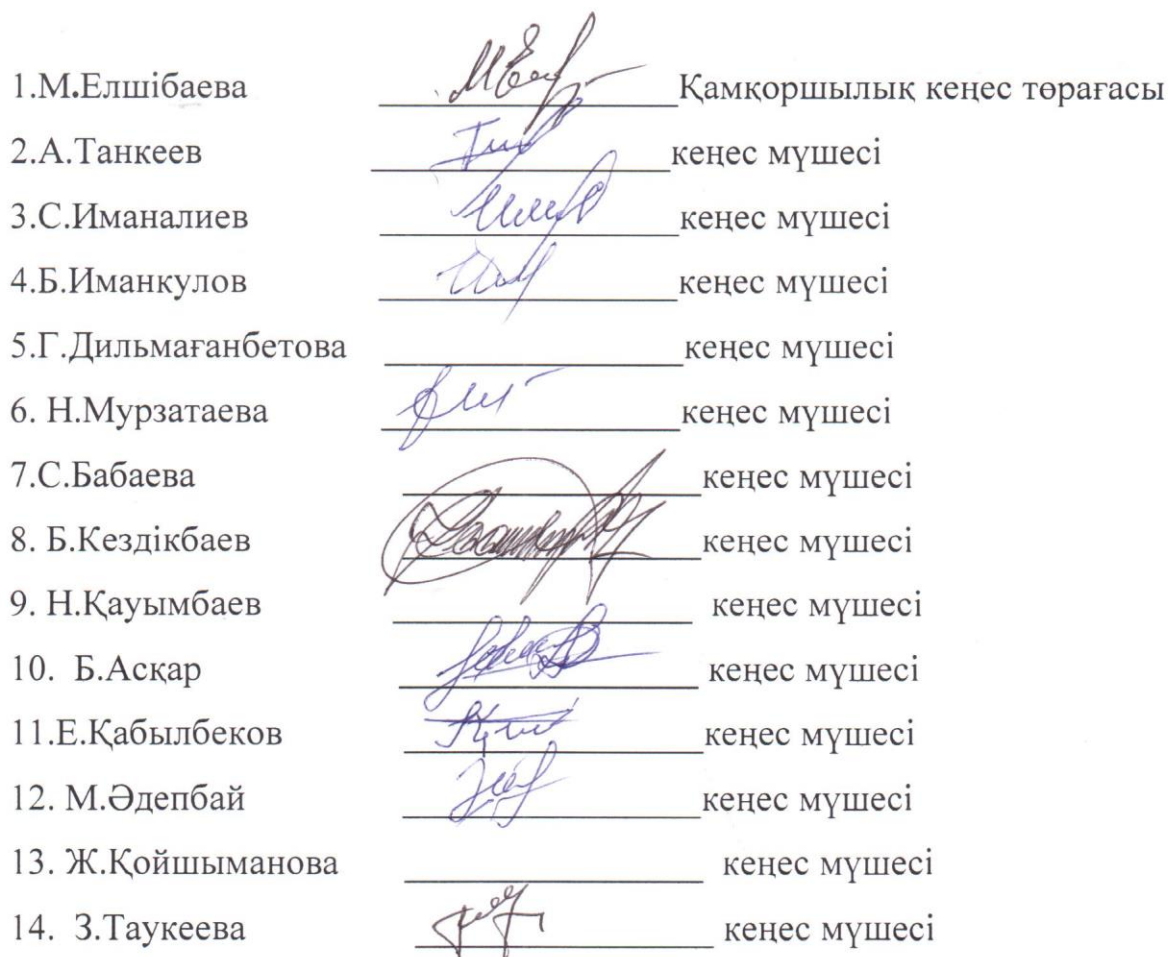 1.М.Елшібаева Қамқоршылық кеңес төрағасы
2.А.Танкеев кеңес мүшесі
3.С.Иманалиев кеңес мүшесі
4.Б.Иманкулов кеңес мүшесі
5.Г.Дильмағанбетова кеңес мүшесі
6. Н.Мурзатаева кеңес мүшесі
7.С.Бабаева кеңес мүшесі
8. Б.Кездікбаев кеңес мүшесі
9. Н.Қауымбаев кеңес мүшесі
10. Б.Асқар кеңес мүшесі
11.Е.Қабылбеков кеңес мүшесі
12. М.Әдепбай кеңес мүшесі
13. Ж.Қойшыманова кеңес мүшесі
14. З.Таукеева кеңес мүшесі